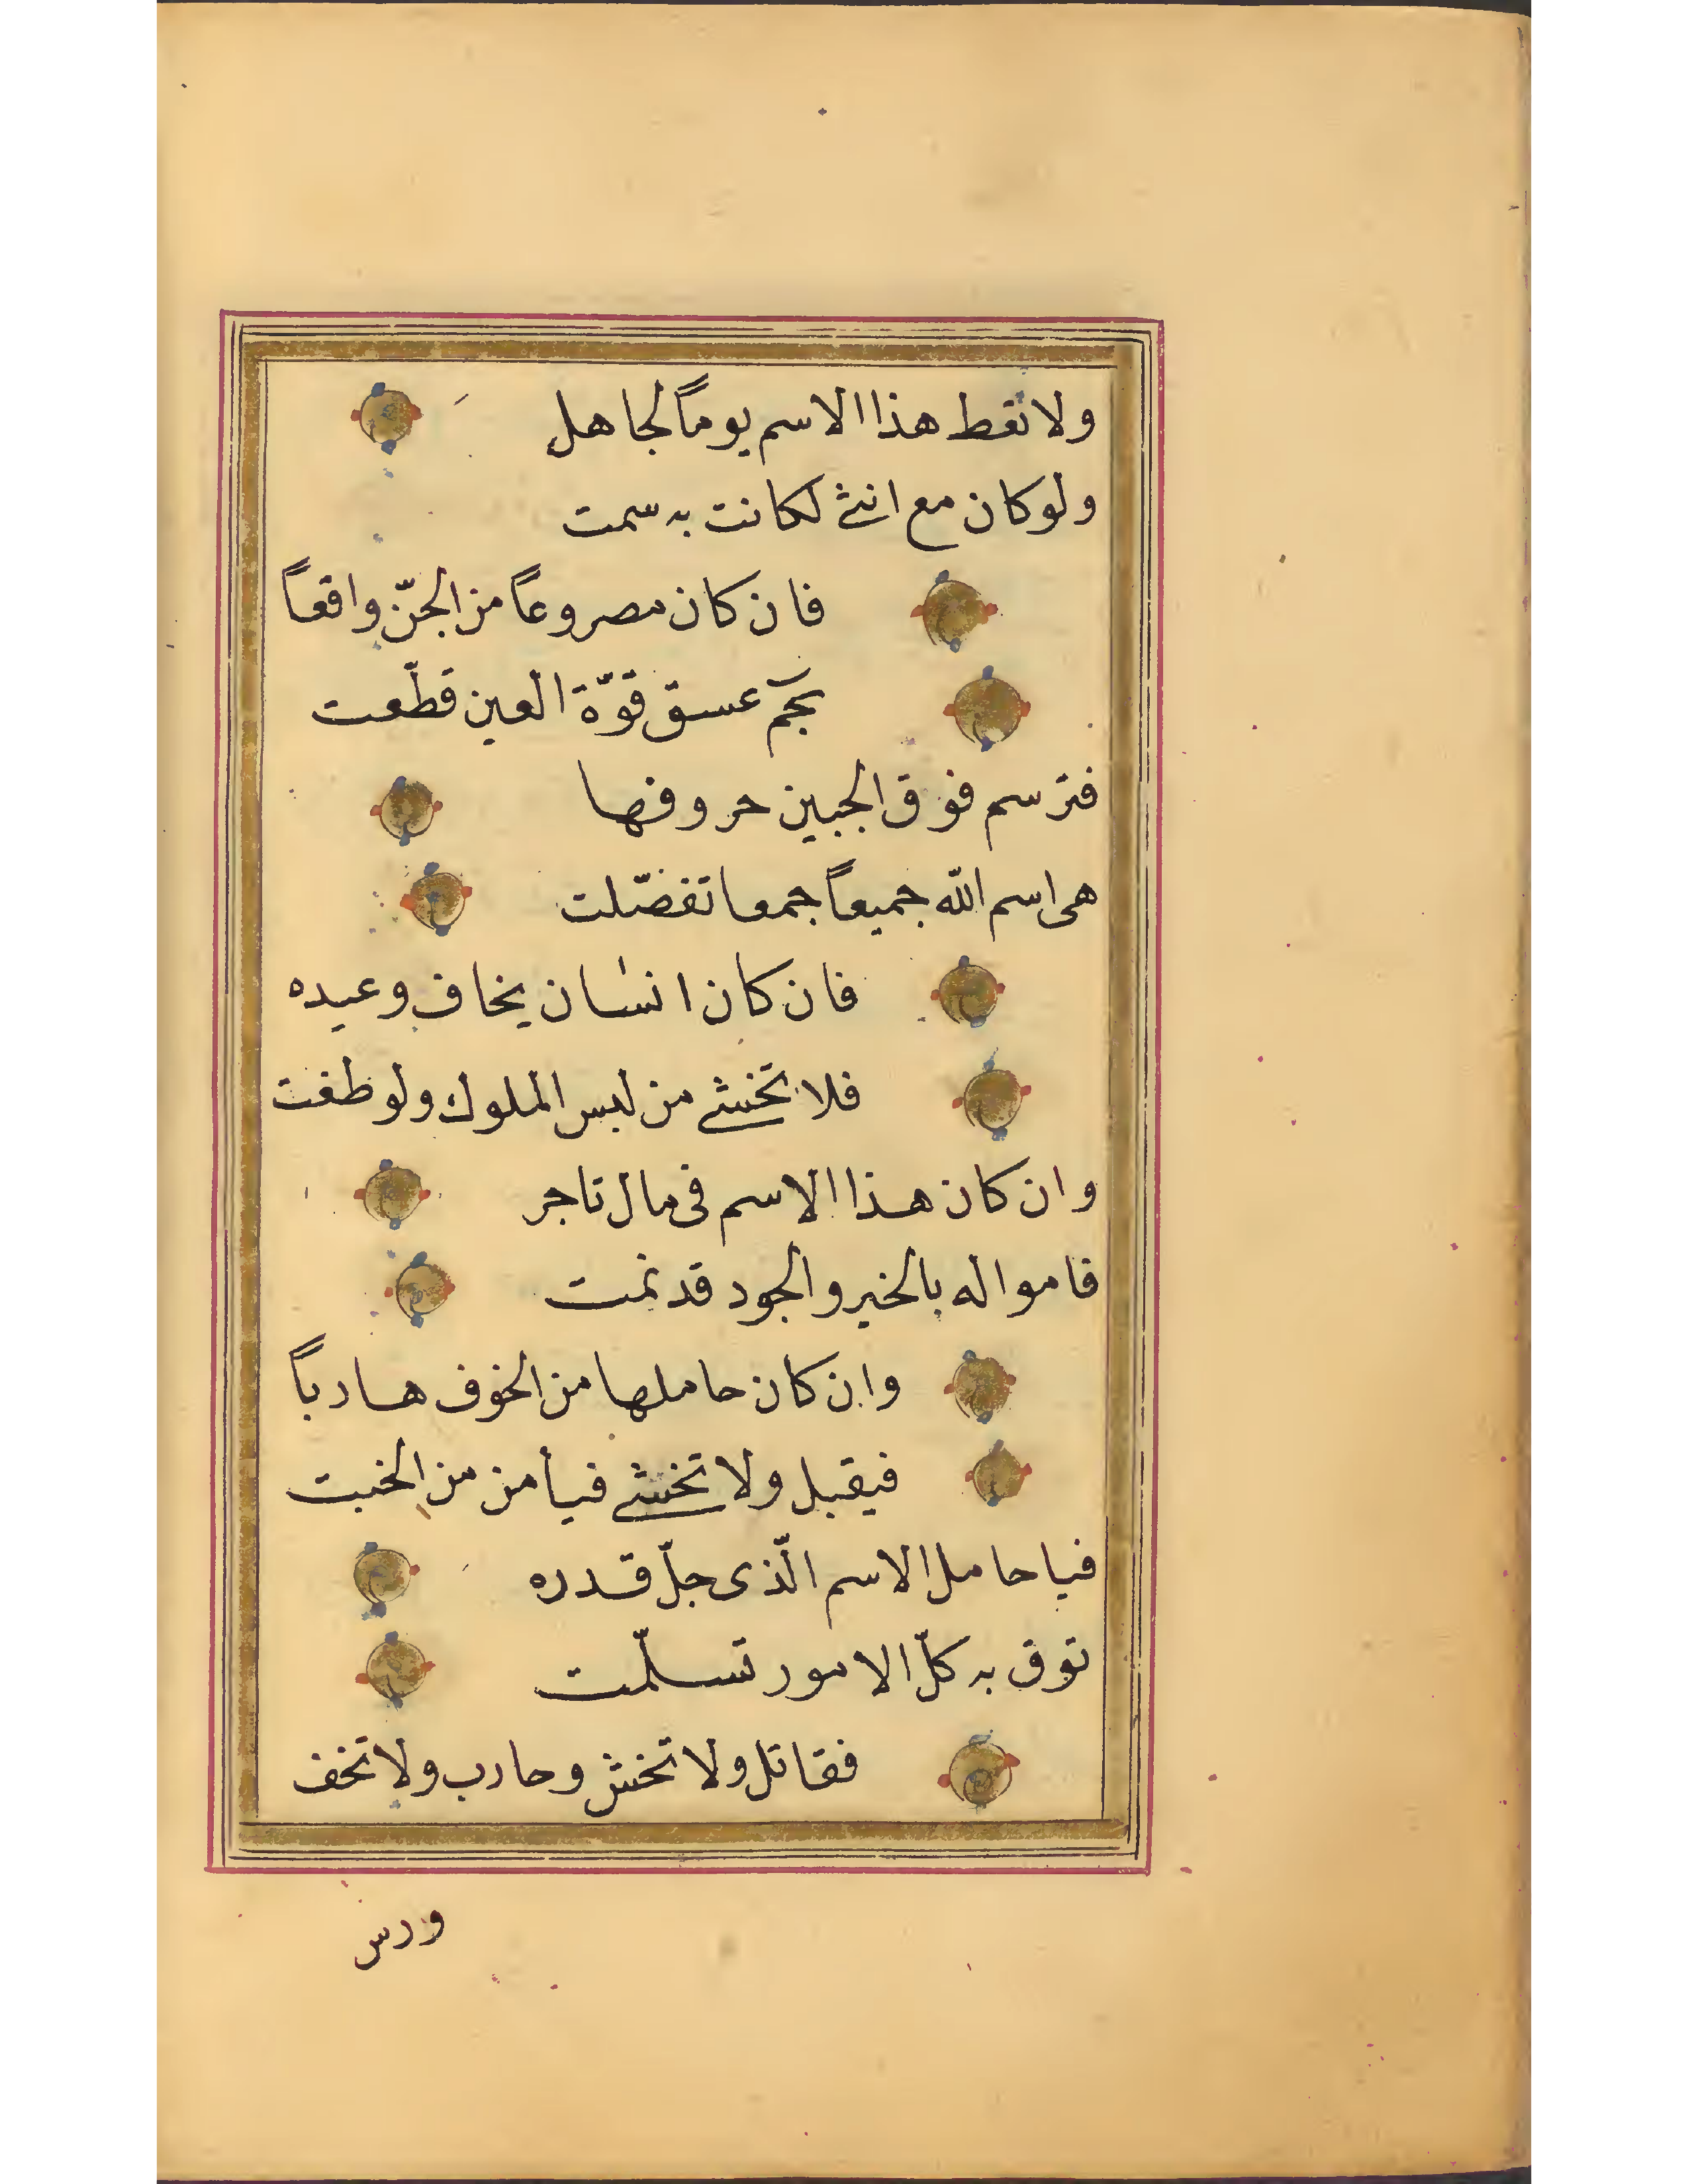 ولا تقط هذا الاسم يوماً لجاهل
ولو كان مع انثى لكانت به سمت
فان كان مصروعاً من الجنّ واقعاً
بحٓم عسق قوّة العين قطّعت
فترسم فوق الجبين حروفها
هى اسم الله جميعاً جمعا تفضّلت
فان كان انسان يخاف وعيده
فلا تخشى من لبس الملوك ولو طغت
وان كان هذا الاسم فى مال تاجر
فامواله بالخير والجود قد نمت
وان كان حاملها من الخوف هارباً
فيقبل ولا تخشى فيأمن من الخبت
فيا حامل الاسم الّذى جلّ قدره
توق به كلّ الامور تسلّمت
فقاتل ولا تخش وحارب ولا تخف
ودس